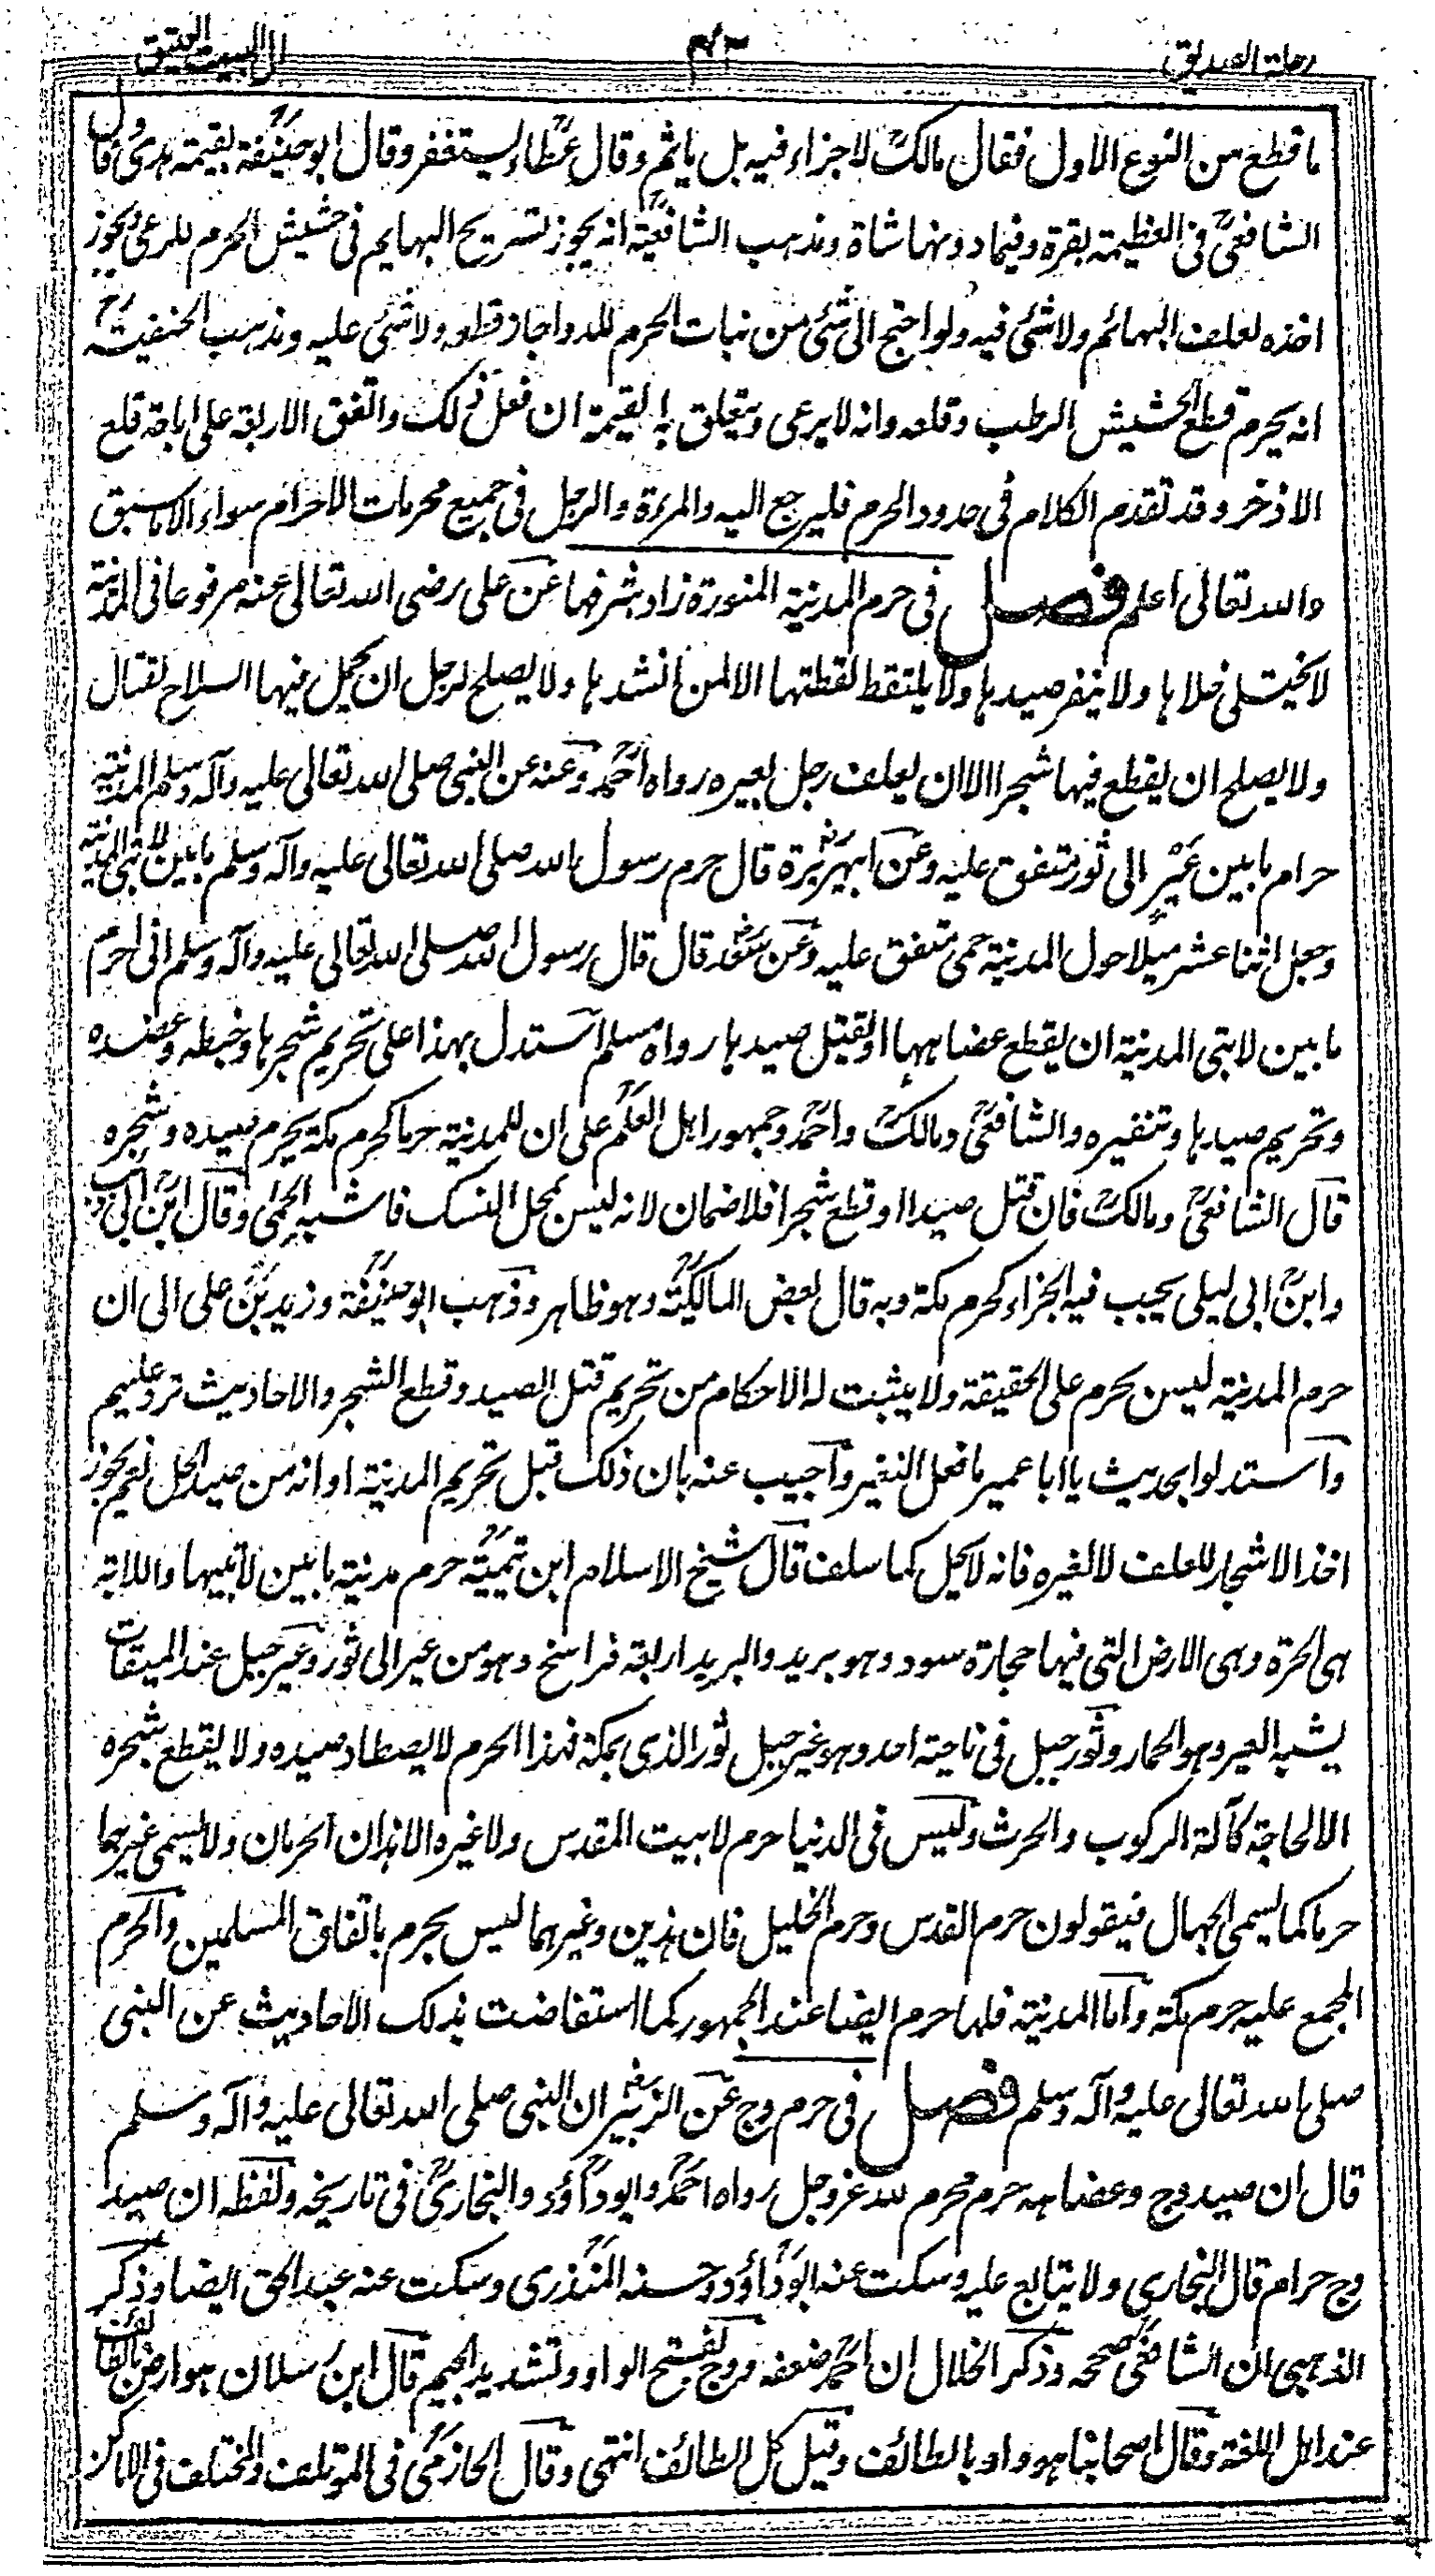 رحلة الصديق
٤٢
الى البيت العتيق
ما قطع من النوع الاول فقال مالك لا جزاء فيه بل ياثم وقال عطاء يستغفر وقال ابو حنيفة بقيمته هدى وقال
الشافعى فى العظيمة بقرة وفيما دونها شاة ومذهب الشافعية انه يجوز تسريح البهايم فى حشيش الحرم للرعى ويجوز
اخذه لعلف البهائم ولا شئ فيه ولو احتج الى شئ من نبات الحرم للدوا جاز قطعه ولا شئ عليه ومذهب الحنفيته
انه يحرم قطع الحشيش الرطب وقلعه وانه لا يرعى ويتعلق به القيمة ان فعل ذلك واتفق الاربعة على اباحة قلع
الاذخر وقد تقدم الكلام فى حدود الحرم فليرجع اليه والمرءة والرجل فى جميع محرمات الاحرام سواء الا ما سبق
والله تعالى اعلم فصل فى حرم المدينة المنورة زاد شرفها عن على رضى الله تعالى عنه مرفوعا فى المدينة
لا يختلى خلاها ولا ينفر صيدها ولا يلتقط لقطتها الا لمن انشدها ولا يصلح لرجل ان يحمل فيها السلاح لقتال
ولا يصلح ان يقطع فيها شجرا الا ان يعلف رجل بعيره رواه احمد وعنه عن النبى صلى الله تعالى عليه وآله وسلم المدينة
حرام ما بين عير الى ثور متفق عليه وعن ابى هريرة قال حرم رسول الله صلى الله تعالى عليه وآله وسلم ما بين لابتى المدينة
وجعل اثنا عشر ميلا حول المدينة حمى متفق عليه وعن سعد قال قال رسول الله صلى الله تعالى عليه وآله وسلم انى احرم
ما بين لابتى المدينة ان يقطع عضاهها او يقتل صيدها رواه مسلم استدل بهذا على تحريم شجرها وخبطه وعضده
وتحريم صيدها وتنفيره والشافعى ومالك واحمد وجمهور اهل العلم على ان للمدينة حرما كحرم مكة يحرم صيده وشجره
قال الشافعى ومالك فان قتل صيدا او قطع شجرا فلا ضمان لانه ليس بمحل النسك فاشبه الحمى وقال ابن ابى ذئب
وابن ابى ليلى يجب فيه الجزاء كحرم مكة وبه قال بعض المالكية وهو ظاهر وذهب ابو حنيفة وزيد بن على الى ان
حرم المدينة ليس بحرم على الحقيقة ولا يثبت له الاحكام من تحريم قتل الصيد وقطع الشجر والاحاديث ترد عليهم
واستدلوا بحديث يا ابا عمير ما فعل النغير واجيب عنه بان ذلك قبل تحريم المدينة او انه من صيد الحل نعم يجوز
اخذ الاشجار للعلف لا لغيره فانه لا يحل كما سلف قال شيخ الاسلام ابن تيمية حرم مدينة ما بين لابتيها واللابة
هى الحرة وهى الارض التى فيها حجارة سود وهو بريد والبريد اربعة فراسخ وهو من عير الى ثور وعير جبل عند الميقات
يشبه العير وهو الحمار وثور جبل فى ناحية احد وهو غير جبل ثور الذى بمكة فهذا الحرم لا يصطاد صيده ولا يقطع شجره
الا لحاجة كآلة الركوب والحرث وليس فى الدنيا حرم لا بيت المقدس ولا غيره الا هذان الحرمان ولا يسمى غيرهما
حرما كما يسمى الجهال فيقولون حرم القدس وحرم الخليل فان هذين وغيرهما ليس بحرم باتفاق المسلمين والحرم
المجمع عليه حرم مكة واما المدينة فلها حرم ايضا عند الجمهور كما استفاضت بذلك الاحاديث عن النبى
صلى الله تعالى عليه وآله وسلم فصل فى حرم وج عن الزبير ان النبى صلى الله تعالى عليه وآله وسلم
قال ان صيد وج وعضاهه حرم محرم لله عز وجل رواه احمد وابو داؤد والبخارى فى تاريخه ولفظه ان صيد
وج حرام قال البخارى ولا يتابع عليه وسكت عنه ابو داؤد وحسنه المنذرى وسكت عنه عبد الحق ايضا وذكر
الذهبى ان الشافعى صححه وذكر الخلال ان احمد ضعفه ووج بفتح الواو وتشديد الجيم قال ابن رسلان هو ارض بالطائف
عند اهل اللغة وقال اصحابنا هو واد بالطائف وقيل كل الطائف انتهى وقال الحازمى فى المؤتلف والمختلف فى الاماكن